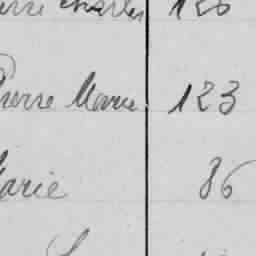 Pierre Charles 126
Pierre Marie 123
Marie 86